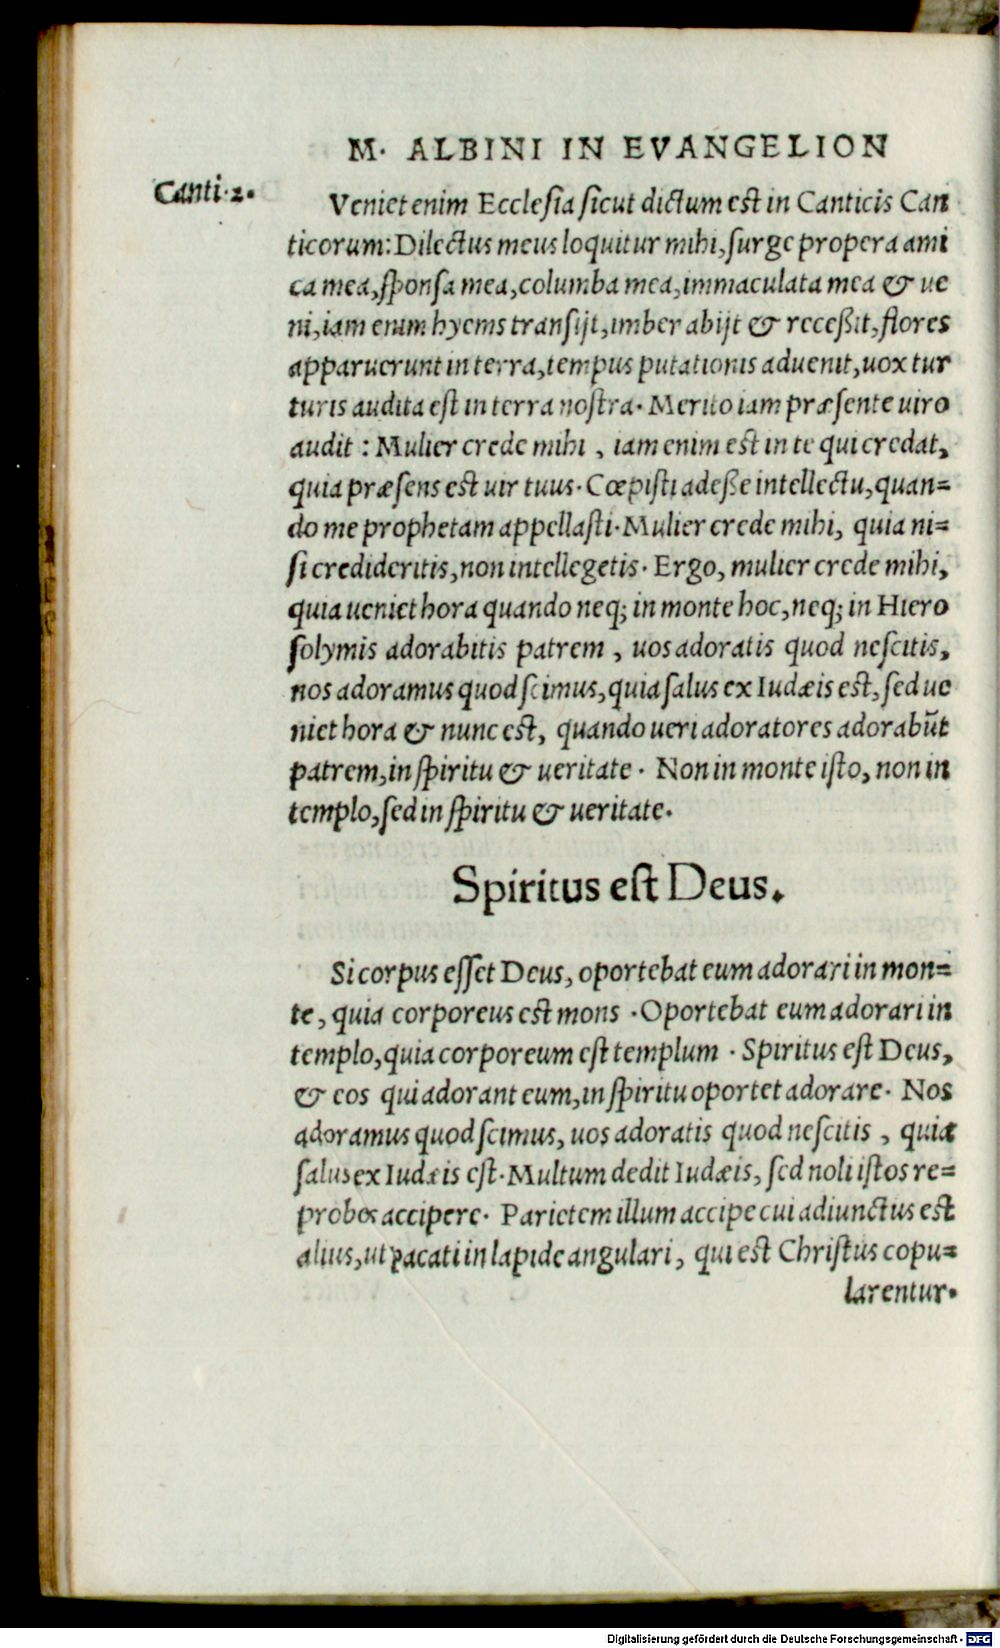 M. ALBINI IN EVANGELION
Canti.2.
Veniet enim Ecclesia sicut dictum est in Canticis Can
ticorum: Dilectus meus loquitur mihi, surge propera ami
ca mea, sponsa mea, columba mea, immaculata mea & ue
ni, iam enim hyems transijt, imber abijt & receßit, flores
apparuerunt in terra, tempus putationis aduenit, uox tur
turis audita est in terra nostra. Merito iam præsente uiro
audit : Mulier crede mihi , iam enim est in te qui credat,
quia præsens est uir tuus. Cœpisti adeße intellectu, quan=
do me prophetam appellasti. Mulier crede mihi, quia ni=
si credideritis, non intellegetis. Ergo, mulier crede mihi,
quia ueniet hora quando neq; in monte hoc, neq; in Hiero
solymis adorabitis patrem , uos adoratis quod nescitis,
nos adoramus quod scimus, quia salus ex Iudæis est, sed ue
niet hora & nunc est, quando ueri adoratores adorabūt
patrem, in spiritu & ueritate . Non in monte isto, non in
templo, sed in spiritu & ueritate.
Spiritus est Deus.
Si corpus esset Deus, oportebat eum adorari in mon=
te, quia corporeus est mons . Oportebat eum adorari in
templo, quia corporeum est templum . Spiritus est Deus,
& eos qui adorant eum, in spiritu oportet adorare. Nos
adoramus quod scimus, uos adoratis quod nescitis , quia
salus ex Iudæis est. Multum dedit Iudæis, sed noli istos re=
probos accipere. Parietem illum accipe cui adiunctus est
alius, ut pacati in lapide angulari, qui est Christus copu=
larentur.
Digitalisierung gefördert durch die Deutsche Forschungsgemeinschaft - DFG